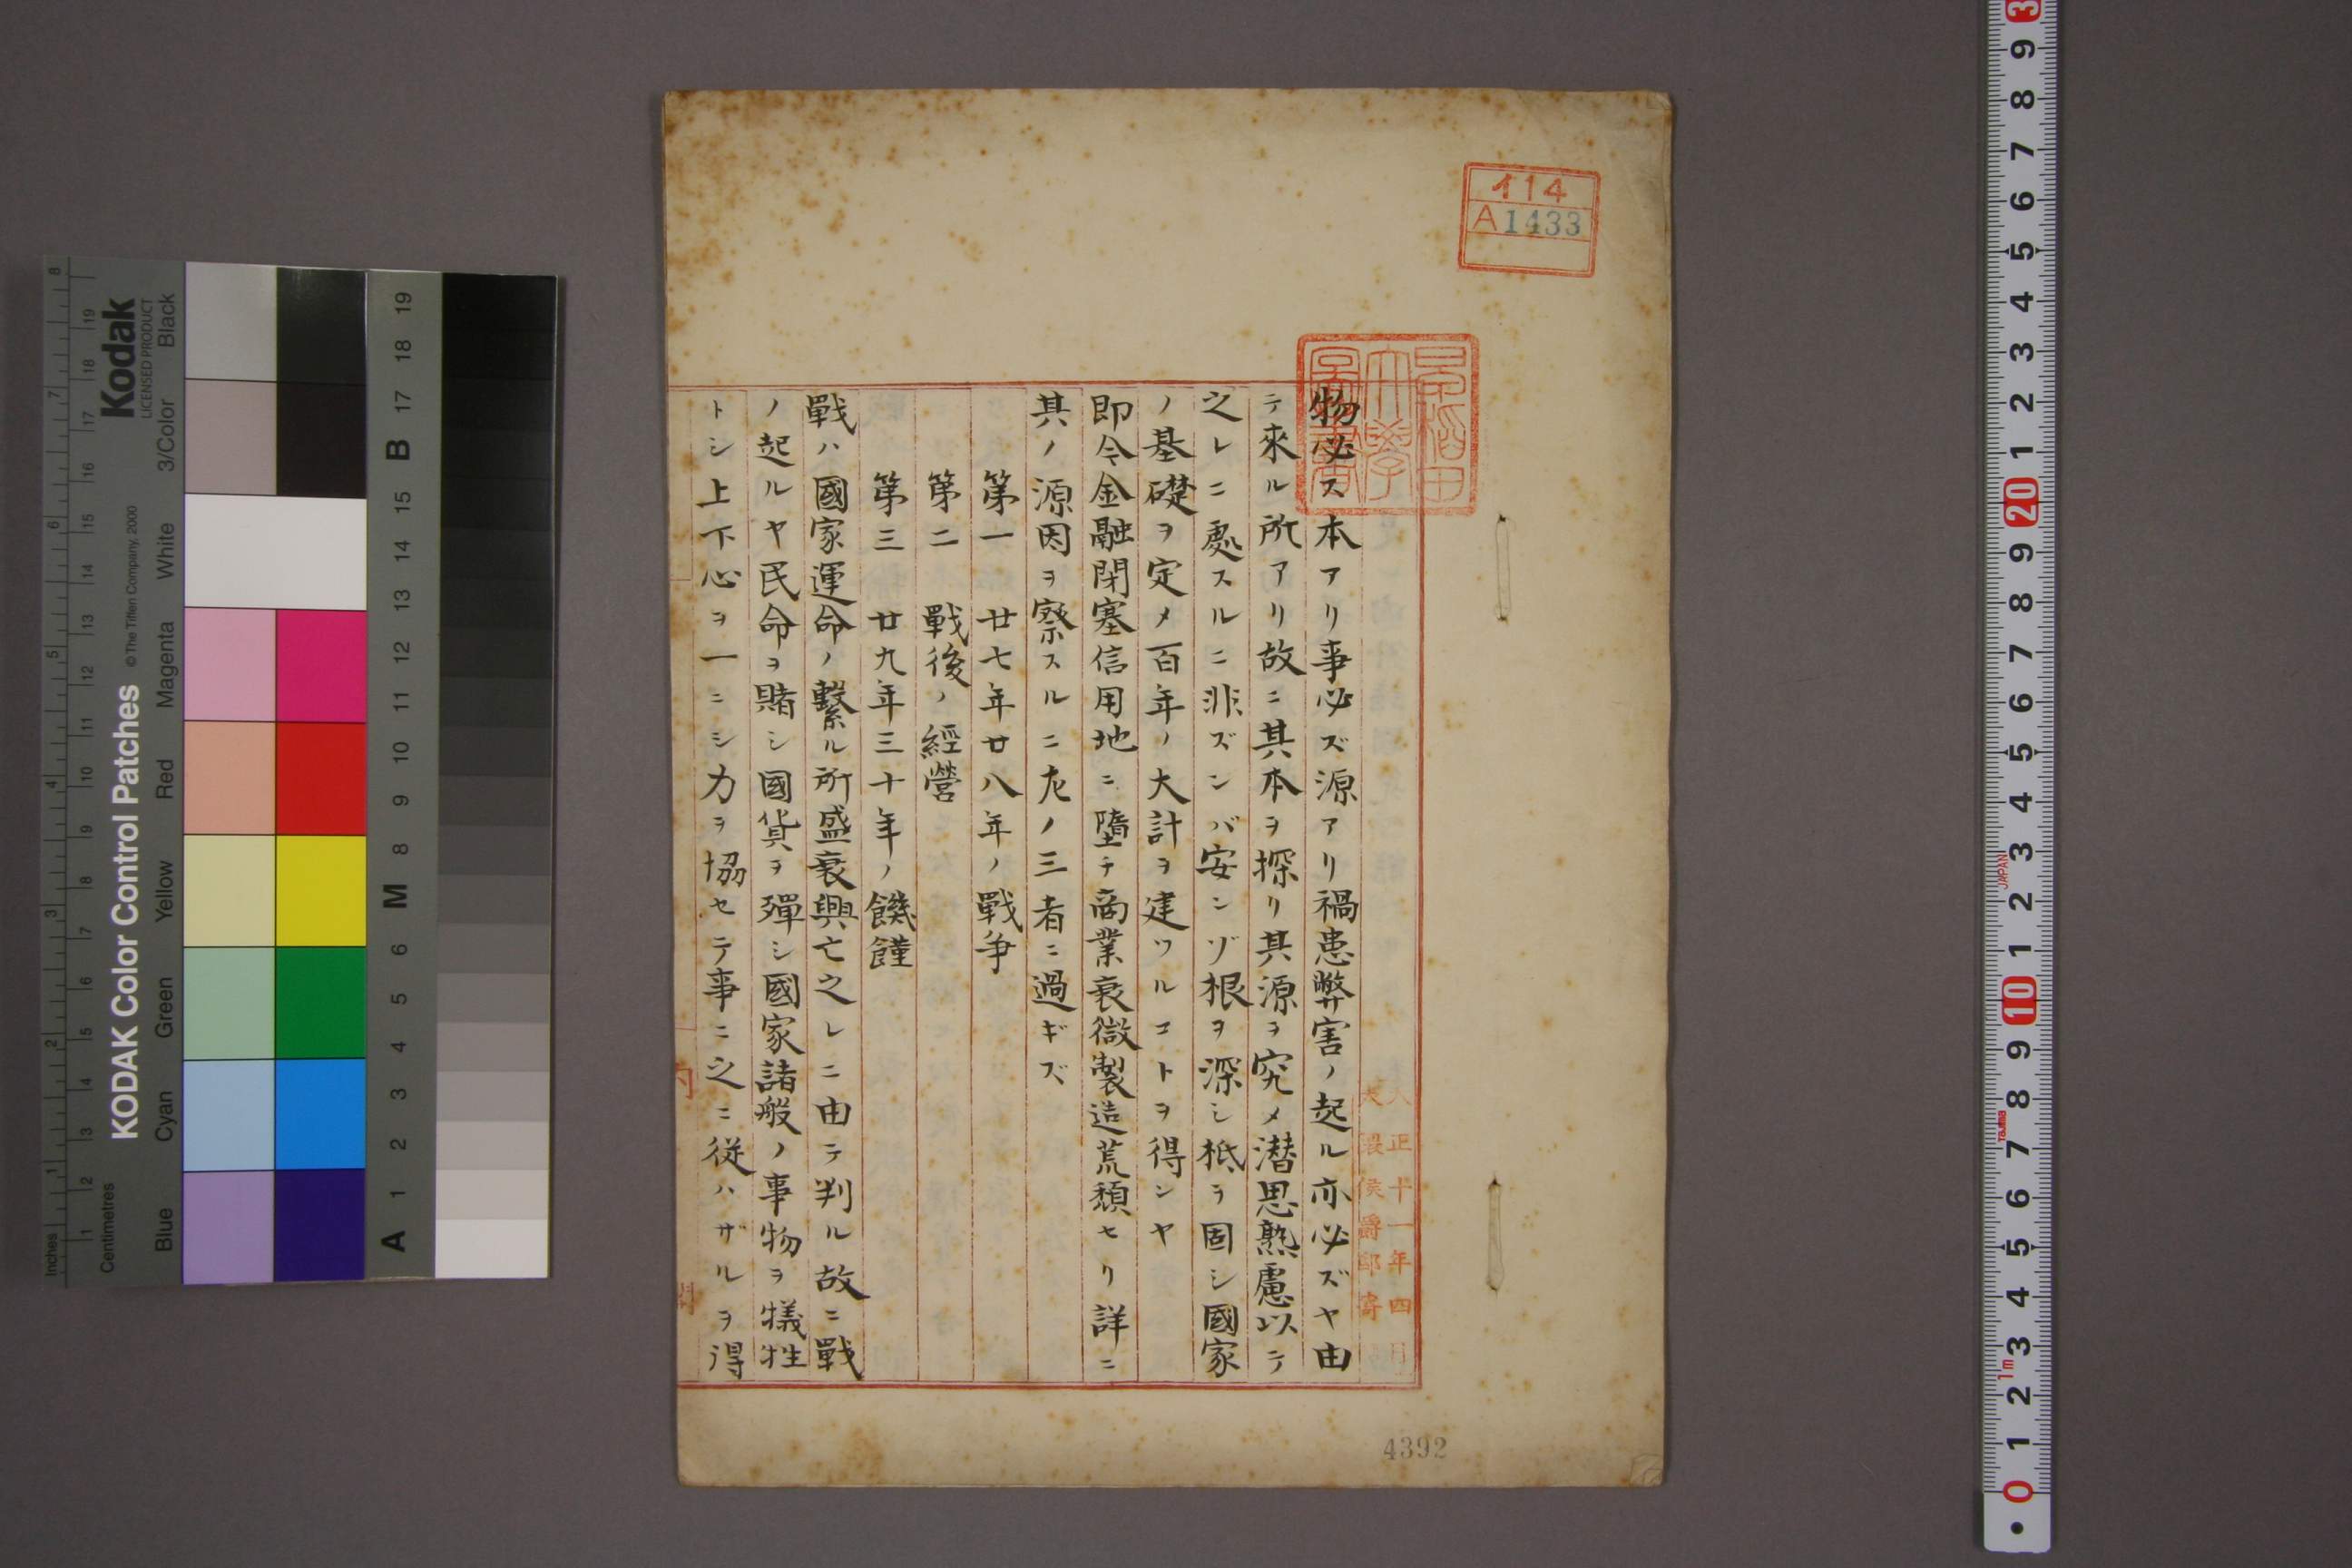 イ14
A1433
早稲田
大學
圖書
大正十一年四月
大隈侯爵邸寄
物必ス本アリ事必ズ源アリ禍患弊害ノ起ル亦必ズヤ由
テ來ル所アリ故ニ其本ヲ探リ其源ヲ究メ潜思熟慮以テ
之レニ處スルニ非ズンバ安ンゾ根ヲ深シ柢ヲ固シ國家
ノ基礎ヲ定メ百年ノ大計ヲ建ツルコトヲ得ンヤ
即今金融閉塞信用地ニ墮チ商業衰微製造荒頽セリ詳ニ
其ノ源因ヲ察スルニ左ノ三者ニ過ギズ
第一 廿七年廿八年ノ戰爭
第二 戰後ノ經營
第三 廿九年三十年ノ饑饉
戰ハ國家運命ノ繫ル所盛衰興亡之レニ由テ判ル故ニ戰
ノ起ルヤ民命ヲ賭シ國貨ヲ殫シ國家諸般ノ事物ヲ犠牲
トシ上下心ヲ一ニシ力ヲ協セテ事ニ之ニ從ハザルヲ得
内
閣
4392
KODAK Color Control Patches
Kodak
LICENSED PRODUCT
© The Tiffen Company, 2000
Inches
Centimetres
Blue Cyan Green Yellow Red Magenta White 3/Color Black
A 1 2 3 4 5 6 M 8 9 10 11 12 13 14 15 B 17 18 19
JAPAN
TAJIMA
1m